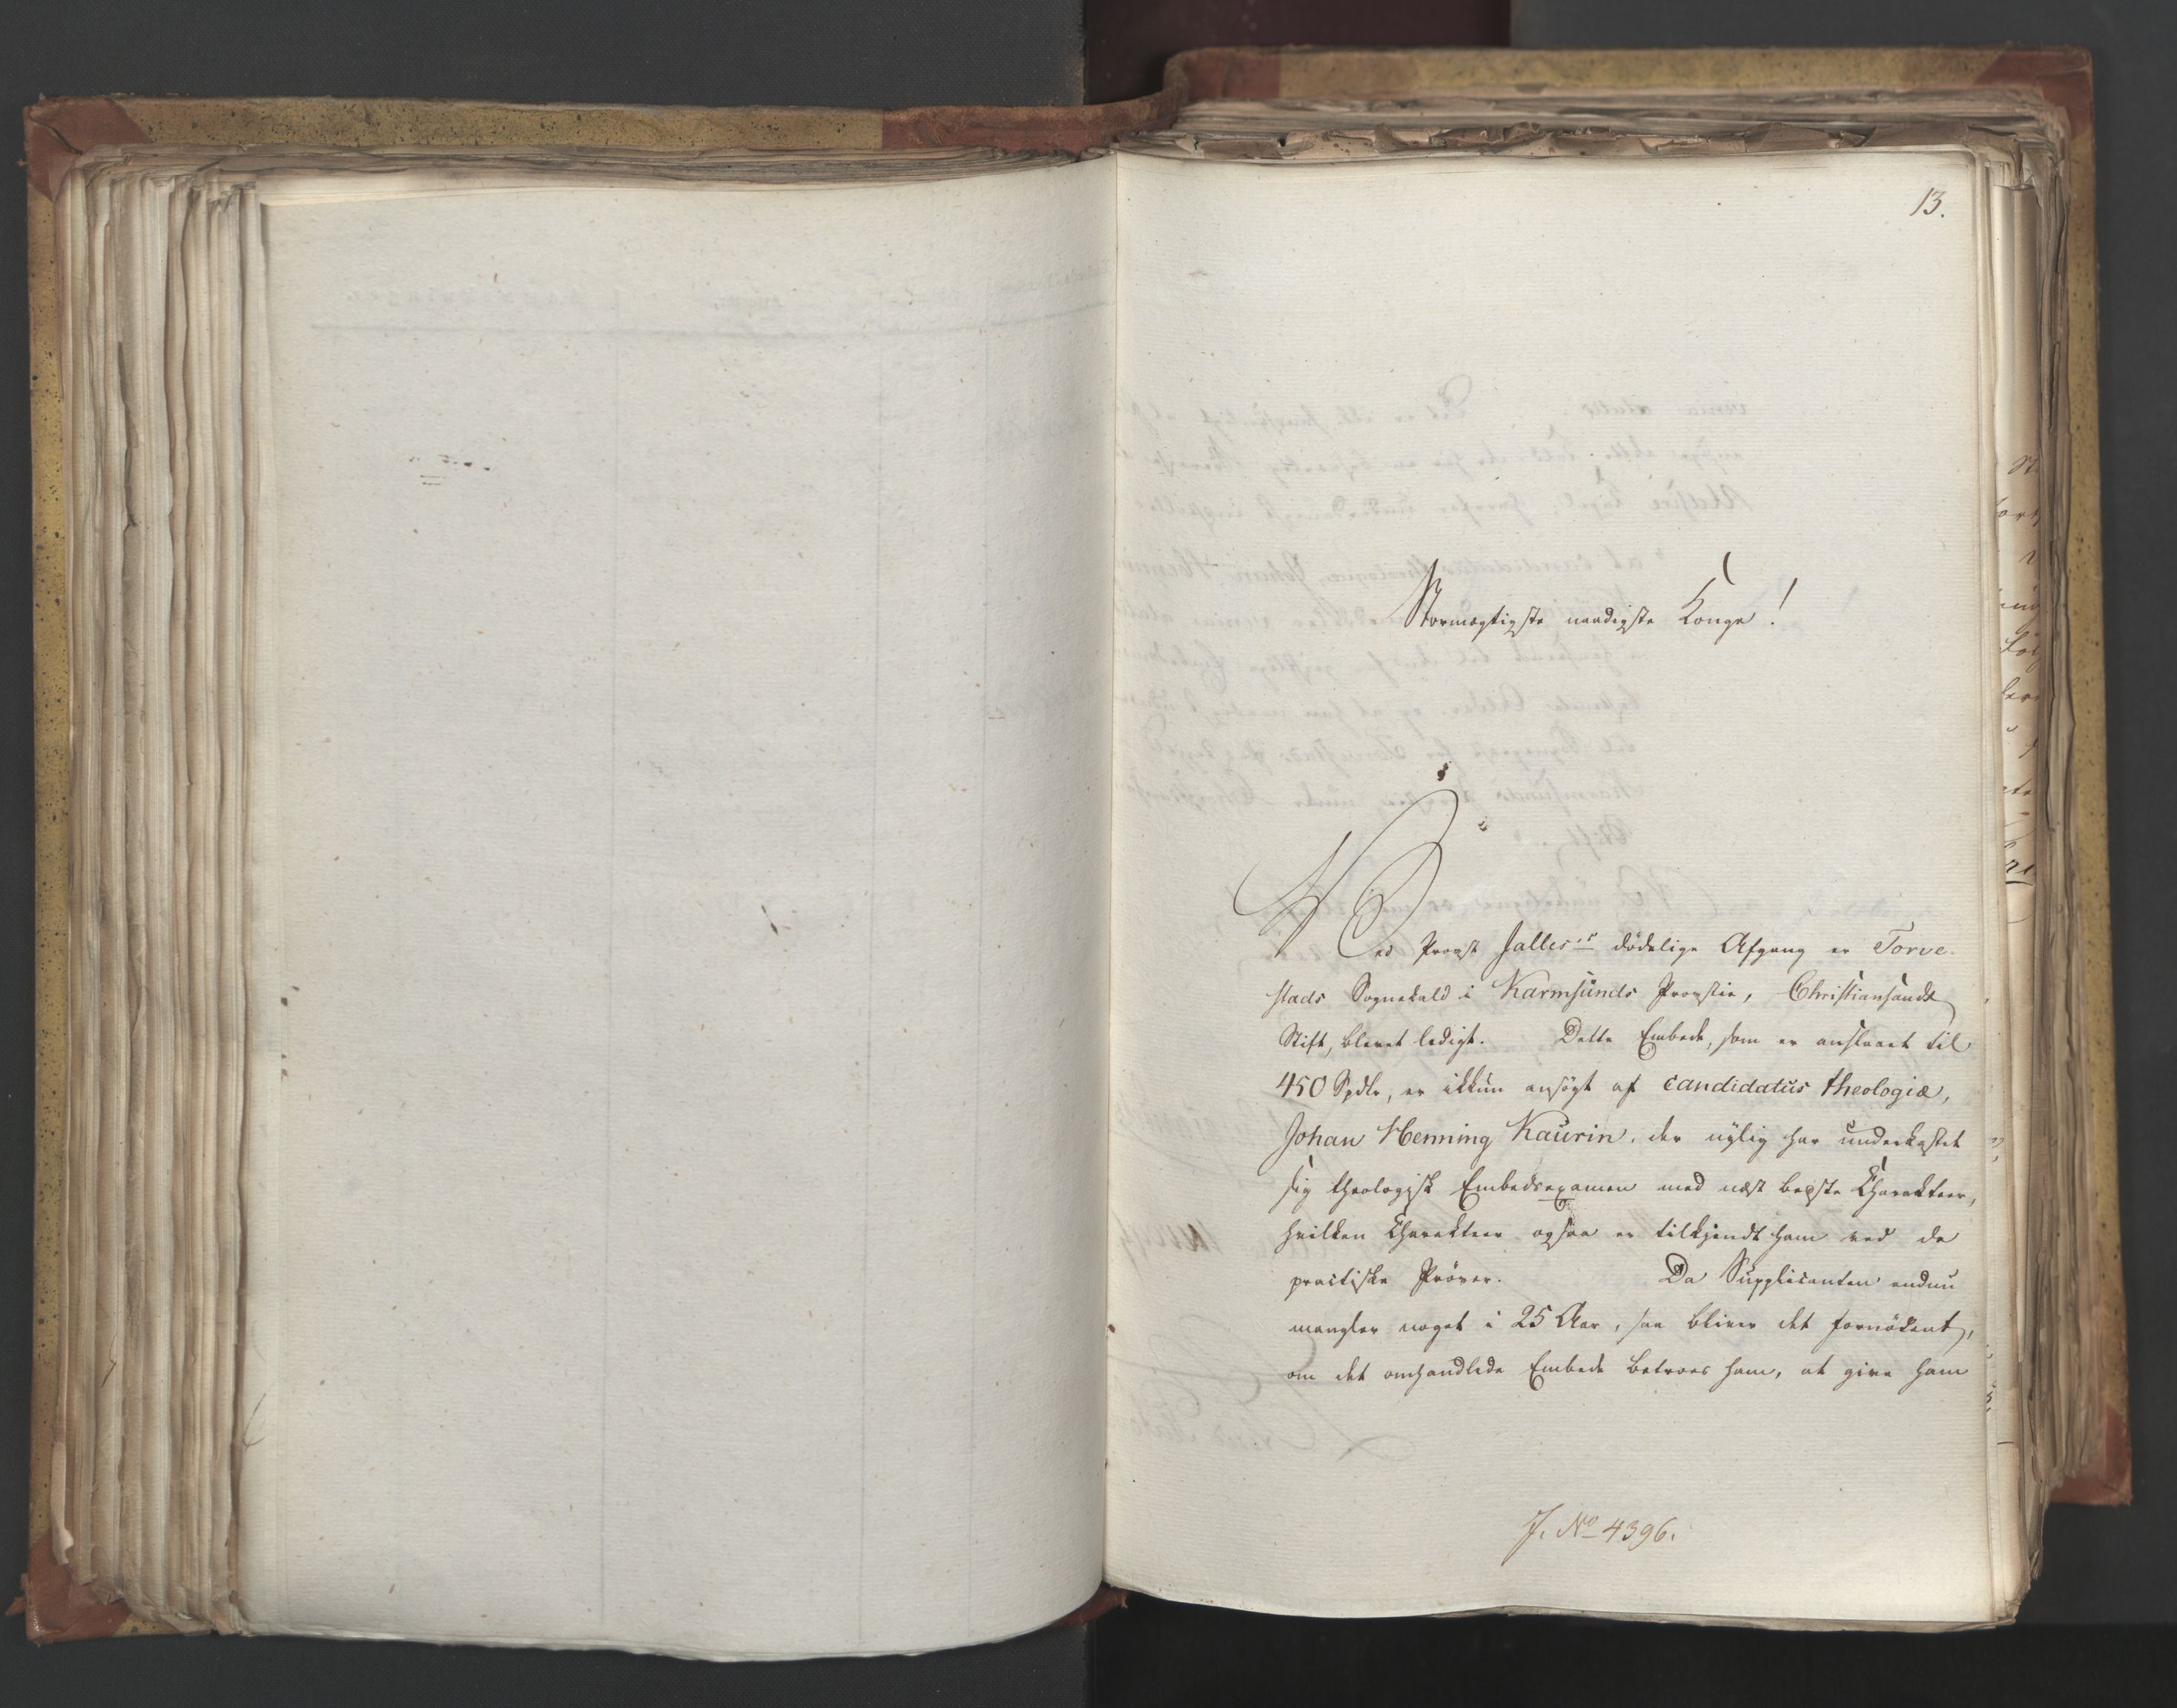 13.
Stormægtigste naadigste Konge!
Ved Provst Jalles's dödelige Afgang er Torve-
stads Sognekald i Karmsunds Provstie, Christiansands
Stift, blevet ledigt. Dette Embede, som er anslaaet til
450 Spdlr, er ikkun ansögt af candidatus theologiæ,
Johan Henning Kaurin, der nylig har underkastet
sig theologisk Embedsexamen med næst bedste Charakteer,
hvilken Charakteer ogsaa er tilkjendt ham ved de
practiske Pröver. Da Supplicanten endnu
mangler noget i 25 Aar, saa bliver det fornödent,
om det omhandlede Embede betroes ham, at give ham
J. No 4396.